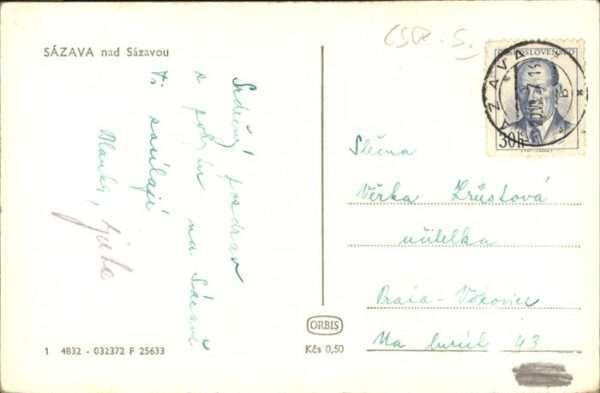 SÁZAVA nad Sázavou
Srdečný pozdrav
z pobytu na Sázavě
Ti zasílají
ČSR-S.
ČESKOSLOVENSKO
30h
SÁZAVA
Slečna
Věrka
učitelka
Praha-Vokovice
Na 43
ORBIS
Kčs 0,50
1 4832 - 032372 F 25633